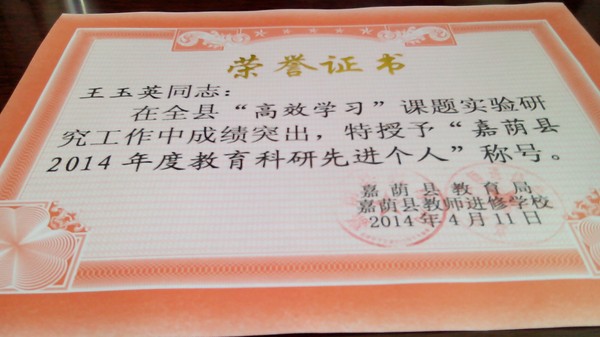 荣誉证书
王玉英同志：
在全县“高效学习”课题实验研
究工作中成绩突出，特授予“嘉荫县
2014年度教育科研先进个人”称号。
嘉荫县教育局
嘉荫县教师进修学校
2014年4月11日